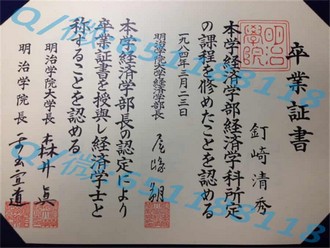 卒業証書
釘崎清秀
本学経済学部経済学科所定
の課程を修めたことを認める
一九八四年三月二三日
明治学院大学経済学部長
本学経済学部長の認定により
卒業証書を授与し経済学士と
称することを認める
明治学院大学長 森井眞
明治学院長
明治學院